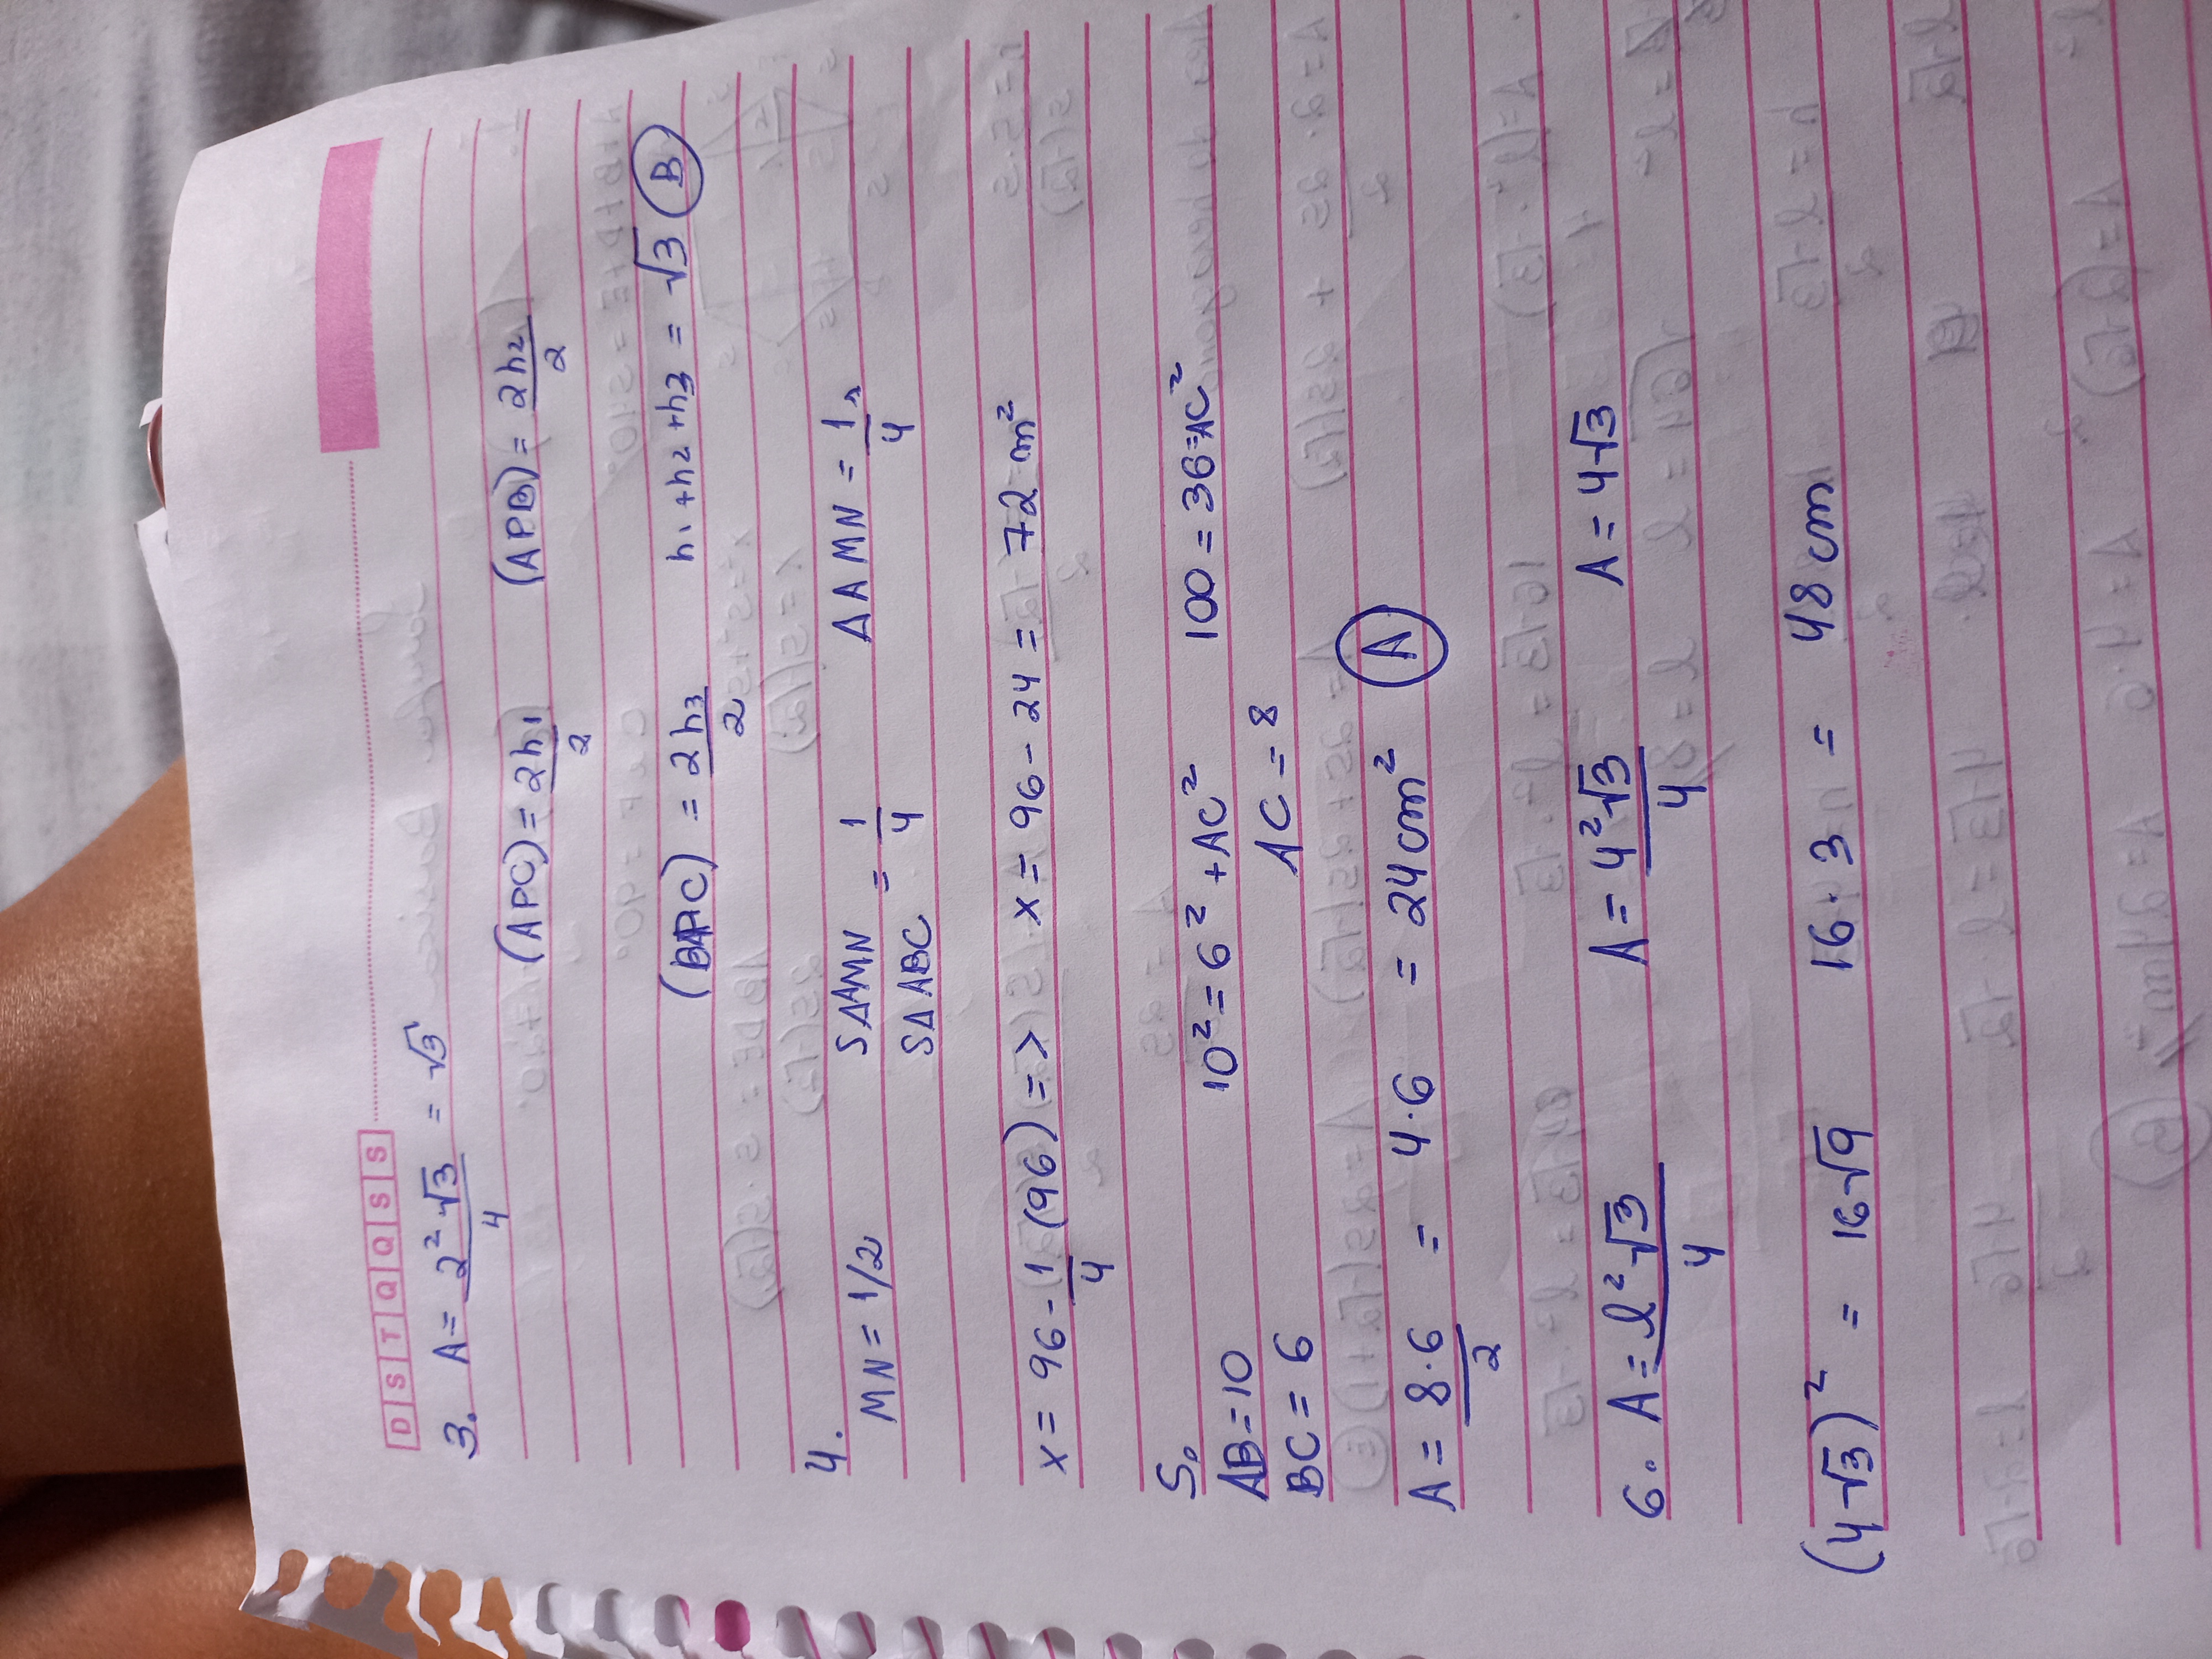 D S T Q Q S S
3. A = 2²√3/4 = √3
(APC) = 2h1/2 (APB) = 2h2/2
(BPC) = 2h3/2 h1 + h2 + h3 = √3 B
4.
MN = 1/2 SΔAMN/SΔABC = 1/4 ΔAMN = 1/4
x = 96 - 1/4 (96) => x = 96 - 24 = 72 m²
5.
AB = 10 10² = 6² + AC² 100 = 36 = AC²
BC = 6 AC = 8
A = 8.6/2 = 4.6 = 24 cm² A
6. A = l²√3/4 A = 4²√3/4 A = 4√3
(4√3)² = 16√9 16.3 = 48 cm